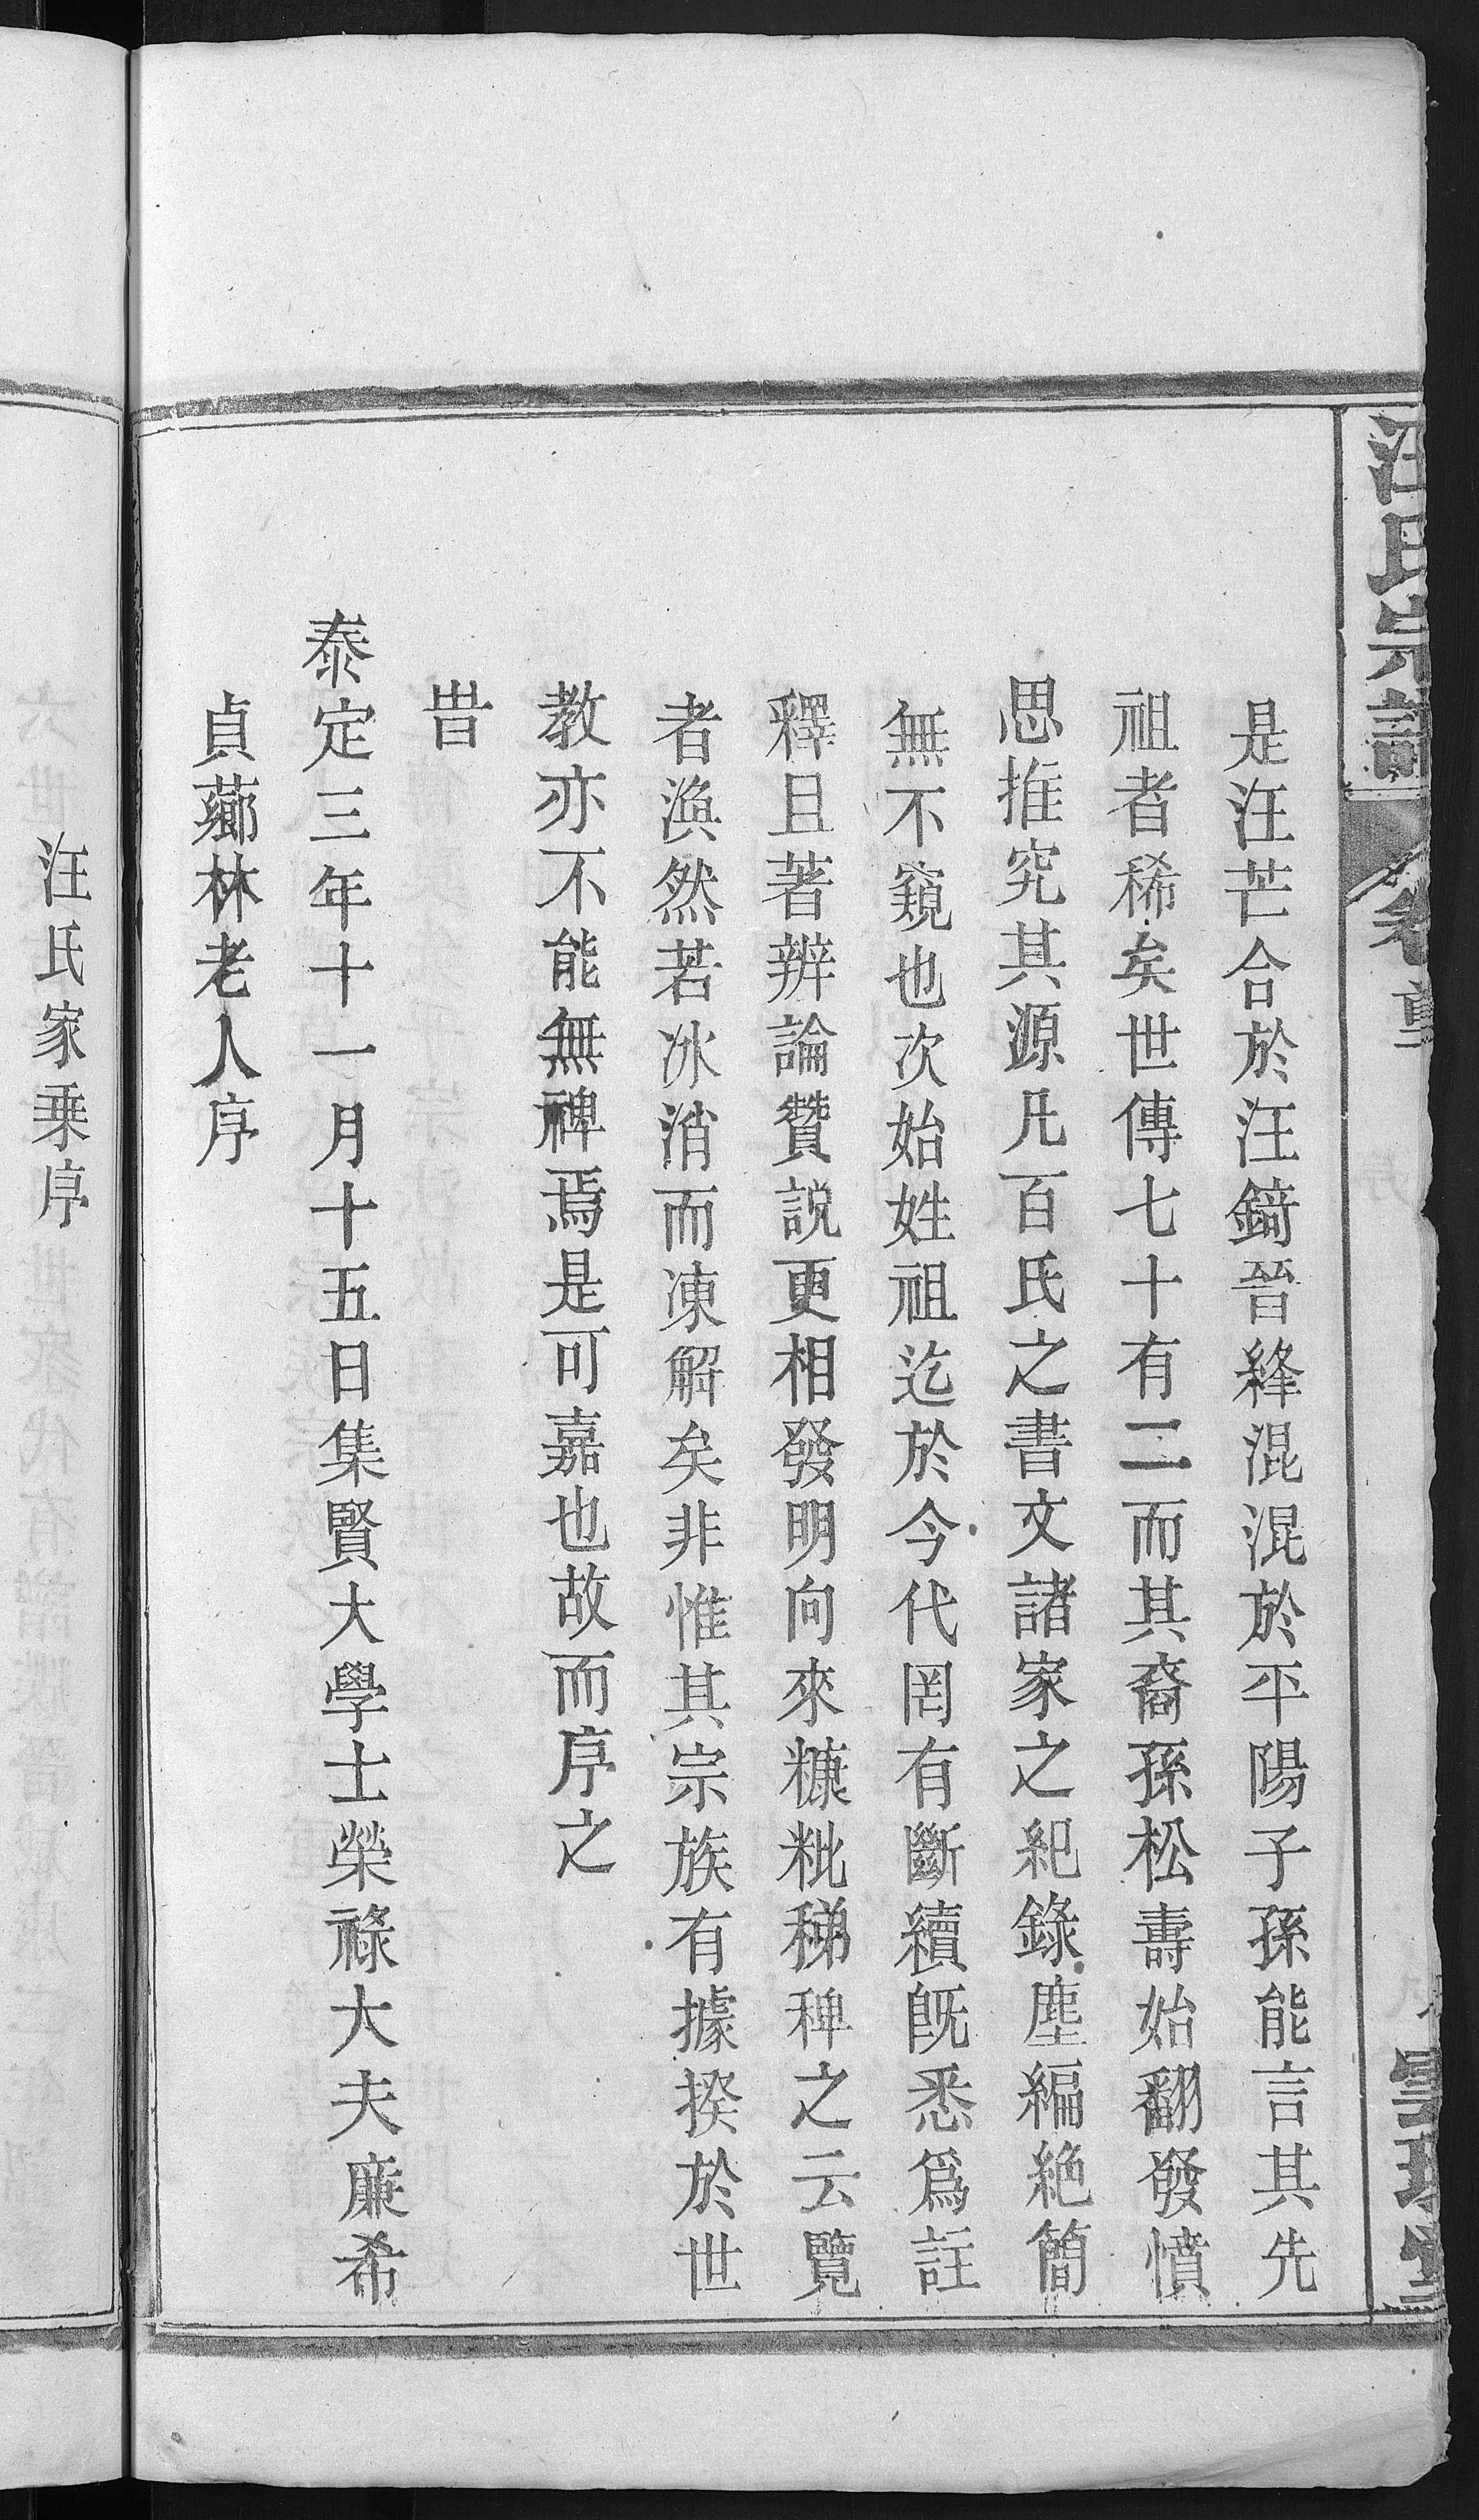 汪氏宗譜
卷首
是汪芒合於汪錡晉絳混混於平陽子孫能言其先
祖者稀矣世傳七十有二而其裔孫松壽始翻發憤
思推究其源凡百氏之書文諸家之紀錄塵編絶簡
無不窺也次始姓祖迄於今代罔有斷續旣悉爲註
釋且著辨論贊説更相發明向來糠粃稊稗之云覽
者渙然若冰消而凍解矣非惟其宗族有據揆於世
教亦不能無裨焉是可嘉也故而序之
昔
泰定三年十一月十五日集賢大學士榮祿大夫廉希
貞薌林老人序
汪氏家乗序